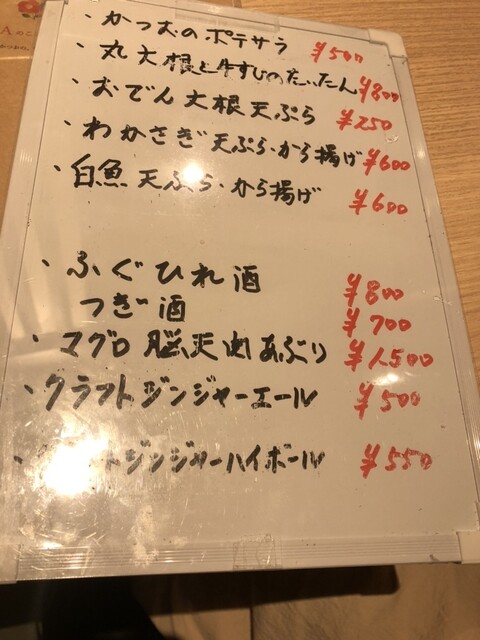 ・かつおのポテサラ ¥500
・丸大根と牛すじのたいたん ¥800
・おでん大根天ぷら ¥250
・わかさぎ天ぷら・から揚げ ¥600
・白魚天ぷら・から揚げ ¥600
・ふぐひれ酒 ¥800
つぎ酒 ¥700
・マグロ脳天肉あぶり ¥1,500
・クラフトジンジャーエール ¥500
トジンジャーハイボール ¥550